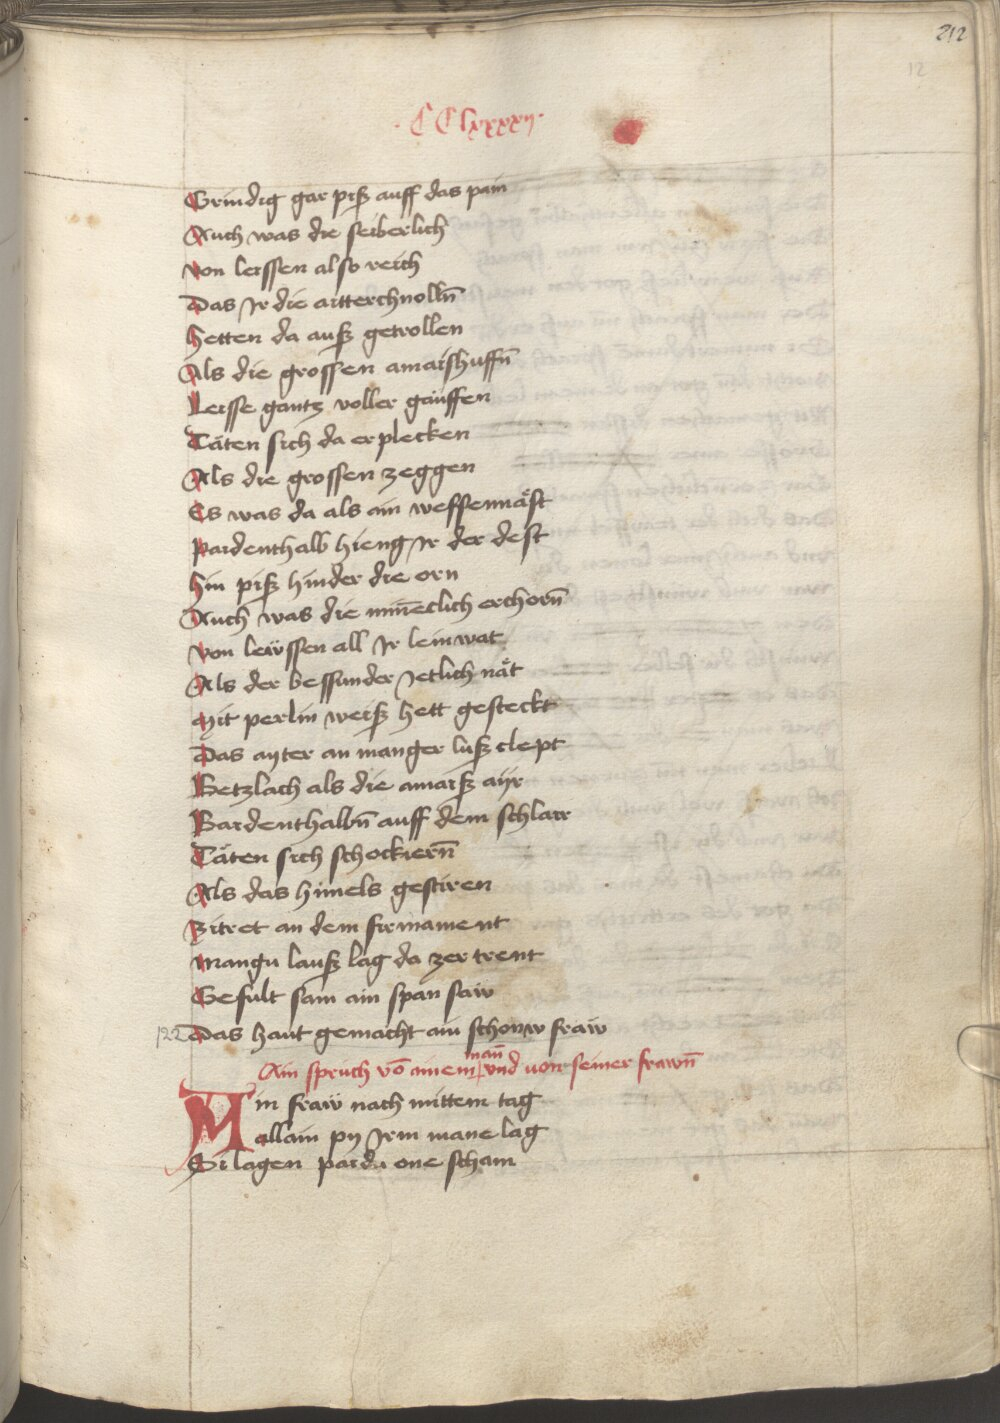 212
12
·CClxxxxij·
Grindig gar piß auff das pain
Auch was die seiberlich
von leissen also reich
Das Ir die aitterchnolln̄
Hetten da auß getrollen
Als die grossen amaishuffn̄
Leisse gantz voller gauffen
Täten sich da erplecken
Als die grossen zeggen
Es was da als ain weffennäst
Pardenthalb hieng Ir der dest
Hin piß hinder die orn
Auch was die min̄eclich erchorn̄
von leẅssen all Ir leinwat
Als der bessunder Jetlich nät
Mit perlin weiß hett gesteckt
Das ayter an manger luß clept
Betzlach als die amaiß ayr
Bardenthalbn̄ auff dem schlair
Täten sich schockiern̄
Als das himels gestiren
Zitret an dem firmament
Mangu lauß lag da zertrent
Gefült sam ain span saw
122 Das haut gemacht ain schonw fraw
Ain spruch vō ainem man̄ und von seiner frawn̄
Min fraẅ nach mittem tag
allain py Irm mane lag
Si lagen parda one scham